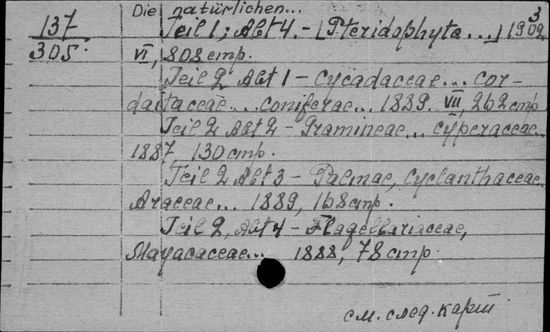 Die natürlichen...
137 Teil 1, Abt 4. - [Pteridophyta...] 1902
3
305. VI, 808 стр.
Teil 2 Abt 1 - Cycadaceae... Cor-
daitaceae... coniferae... 1889. VII 262 стр
Teil 2 Abt 2 - Gramineae... cyperaceae
1887, 130 стр.
Teil 2 Abt 3 - Palmae, Cyclanthaceae
Araceae... 1889, 168 стр.
Teil 2, Abt 4 - Flagellariaceae,
Mayacaceae... 1888, 78 стр
см. след. карт